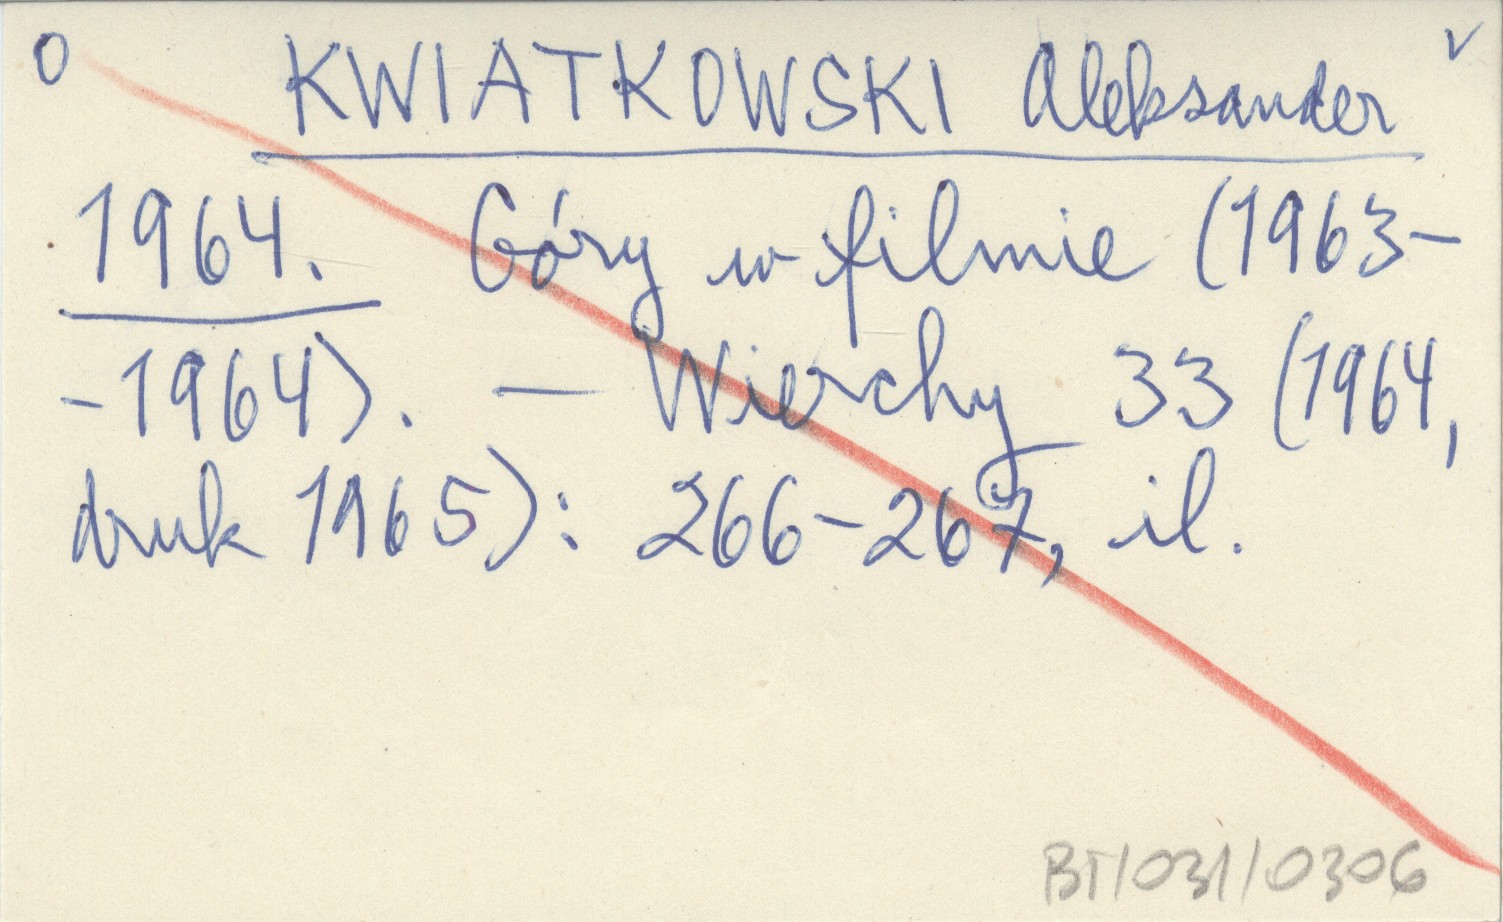 O KWIATKOWSKI Aleksander v
1964. Góry w filmie (1963-
-1964). — Wierchy 33 (1964,
druk 1965): 266-267, il.
BT/031/0306